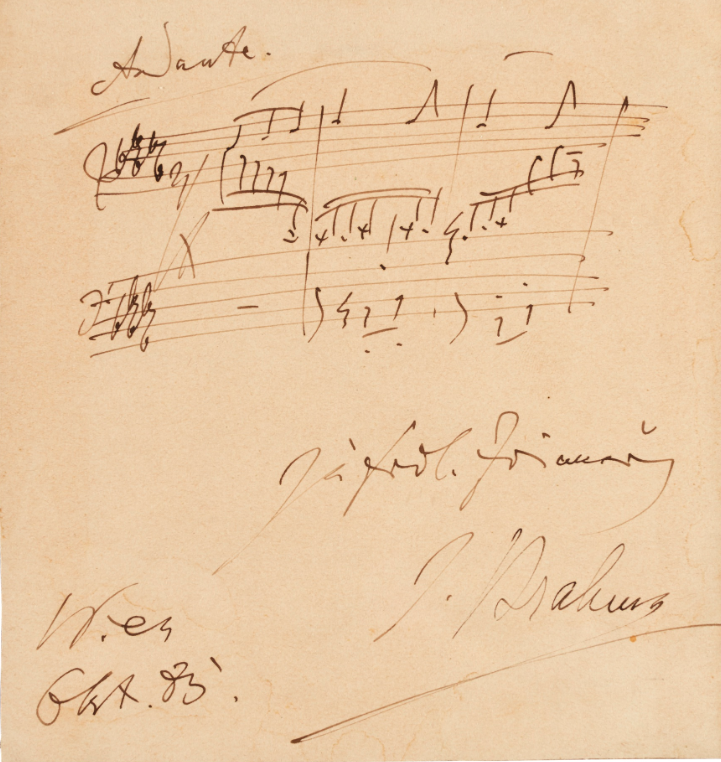 Andante.
Zu frdl. Erinnerung
J. Brahms
Wien
Okt. 85.